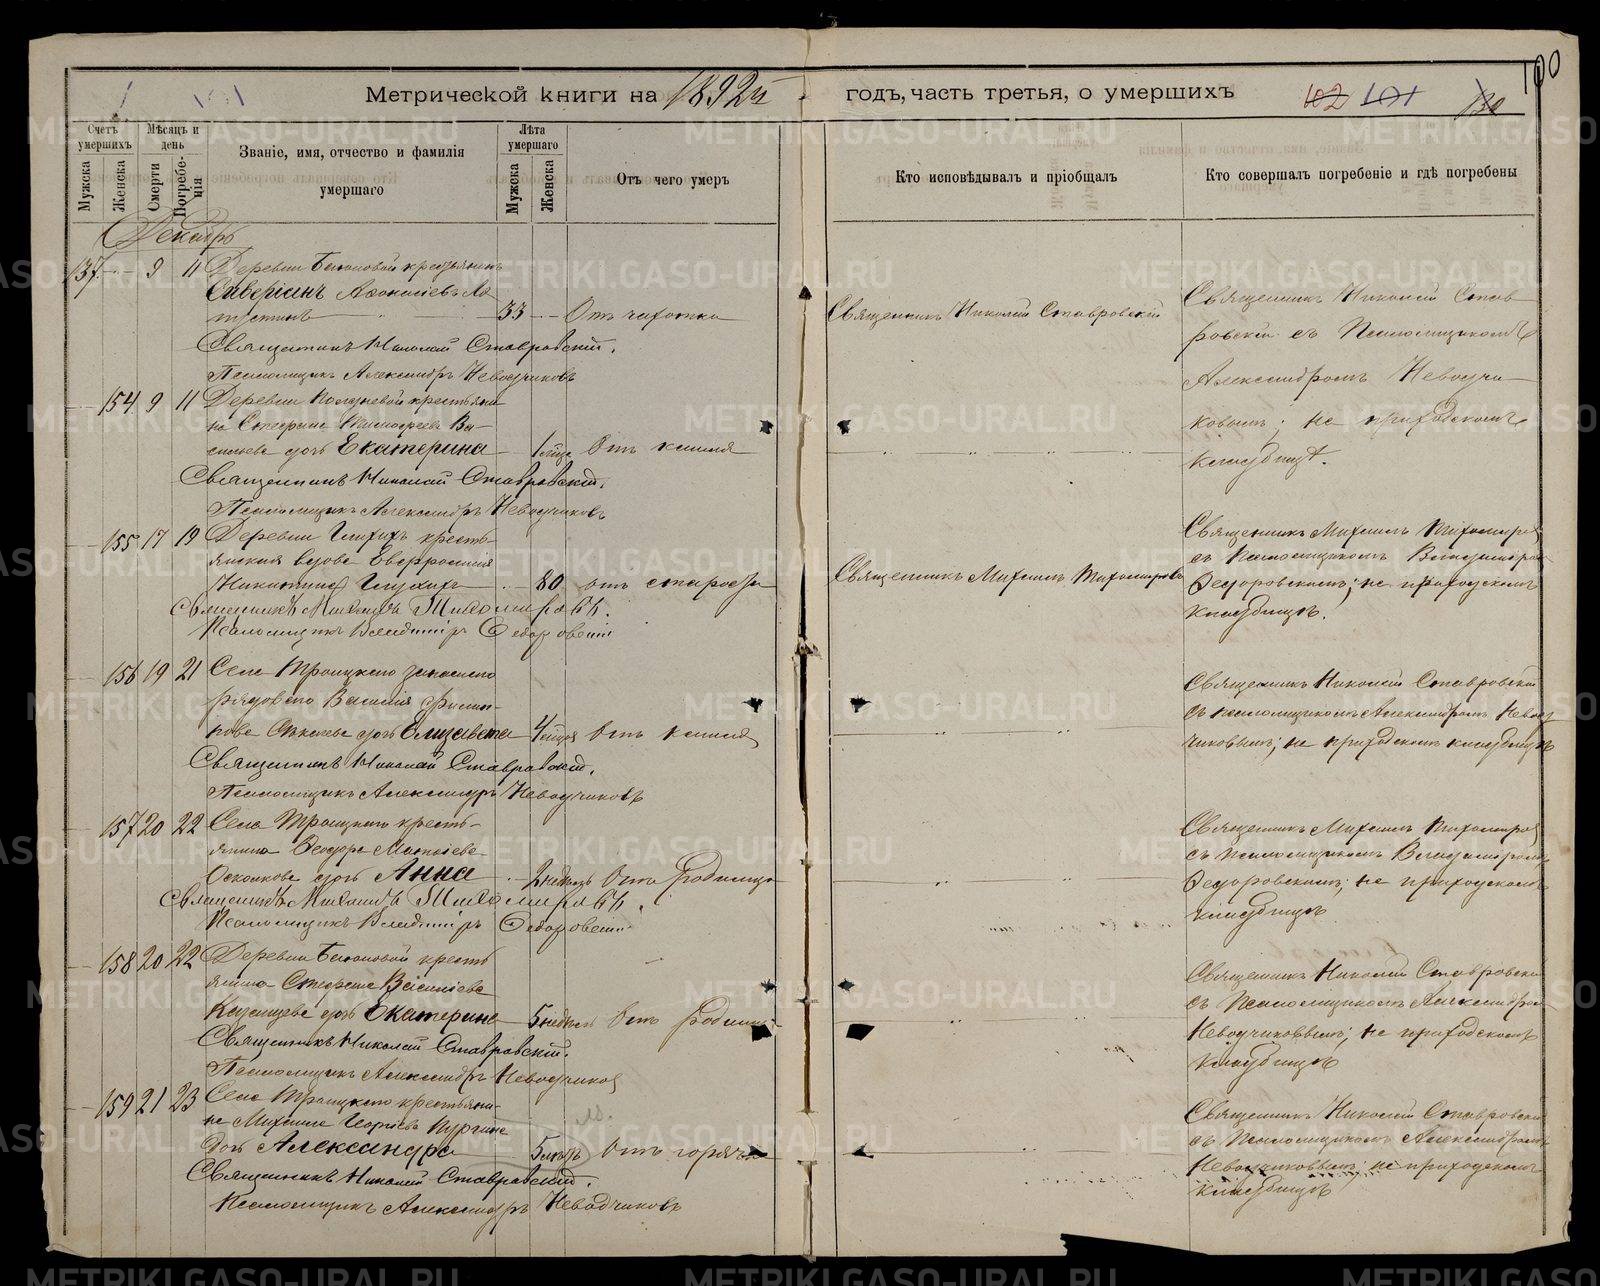 Метрической книги на 1892й годъ, часть третья, о умершихъ
102 101 130 100
Счетъ умершихъ
Мужска
Женска
Мѣсяцъ и день
Смерти
Погребенія
Званіе, имя, отчество и фамилія умершаго
Лѣта умершаго
Мужска
Женска
Отъ чего умеръ
Кто исповѣдывалъ и пріобщалъ
Кто совершалъ погребеніе и гдѣ погребены
Декабрь
137 9 11 Деревни крестьянинъ
33 Отъ чахотки
Священникъ Николай Ставровскій
Священникъ Николай Ставровскій.
Псаломщикъ Александръ Неводчиковъ
Священникъ Николай Став
ровскій съ Псаломщикомъ
Александромъ Неводчи
ковымъ; на приходскомъ
кладбищѣ.
154 9 11 Деревни крестьяни
на Стефана Тимофеева Ва
сильева дочь Екатерина
1 Отъ кашля
Священникъ Николай Ставровскій.
Псаломщикъ Александръ Неводчиковъ
155 17 19 Деревни кресть
янская вдова Евфросинія
80 отъ старости
Священникъ Михаилъ Тихомировъ
Священникъ Михаилъ Тихомировъ.
Псаломщикъ Владиміръ Федоровскій
Священникъ Михаилъ Тихомировъ
съ Псаломщикомъ Владиміромъ
Федоровскимъ; на приходскомъ
кладбищѣ.
156 19 21 Села Троицкаго запаснаго
рядоваго Василія
дочь Елизавета 4 Отъ кашля
Священникъ Николай Ставровскій.
Псаломщикъ Александръ Неводчиковъ
Священникъ Николай Ставровскій
съ псаломщикомъ Александромъ Невод
чиковымъ; на приходскомъ кладбищѣ
157 20 22 Села Троицкаго кресть
янина Ѳеодора Матвіева
дочь Анна 2 недѣль Отъ родимца
Священникъ Михаилъ Тихомировъ.
Псаломщикъ Владиміръ Федоровскій
Священникъ Михаилъ Тихомировъ
съ псаломщикомъ Владиміромъ
Федоровскимъ; на приходскомъ
кладбищѣ
158 20 22 Деревни кресть
янина Стефана Василіева
Казанцева дочь Екатерина 5 недѣль Отъ родимца
Священникъ Николай Ставровскій.
Псаломщикъ Александръ Неводчиковъ
Священникъ Николай Ставровскій
съ Псаломщикомъ Александромъ
Неводчиковымъ; на приходскомъ
кладбищѣ
159 21 23 Села Троицкаго крестьяни
на Михаила Георгіева Пургина
дочь Александра 5 Отъ горячки
Священникъ Николай Ставровскій.
Псаломщикъ Александръ Неводчиковъ
Священникъ Николай Ставровскій
съ Псаломщикомъ Александромъ
Неводчиковымъ; на приходскомъ
кладбищѣ
METRIKI.GASO-URAL.RU